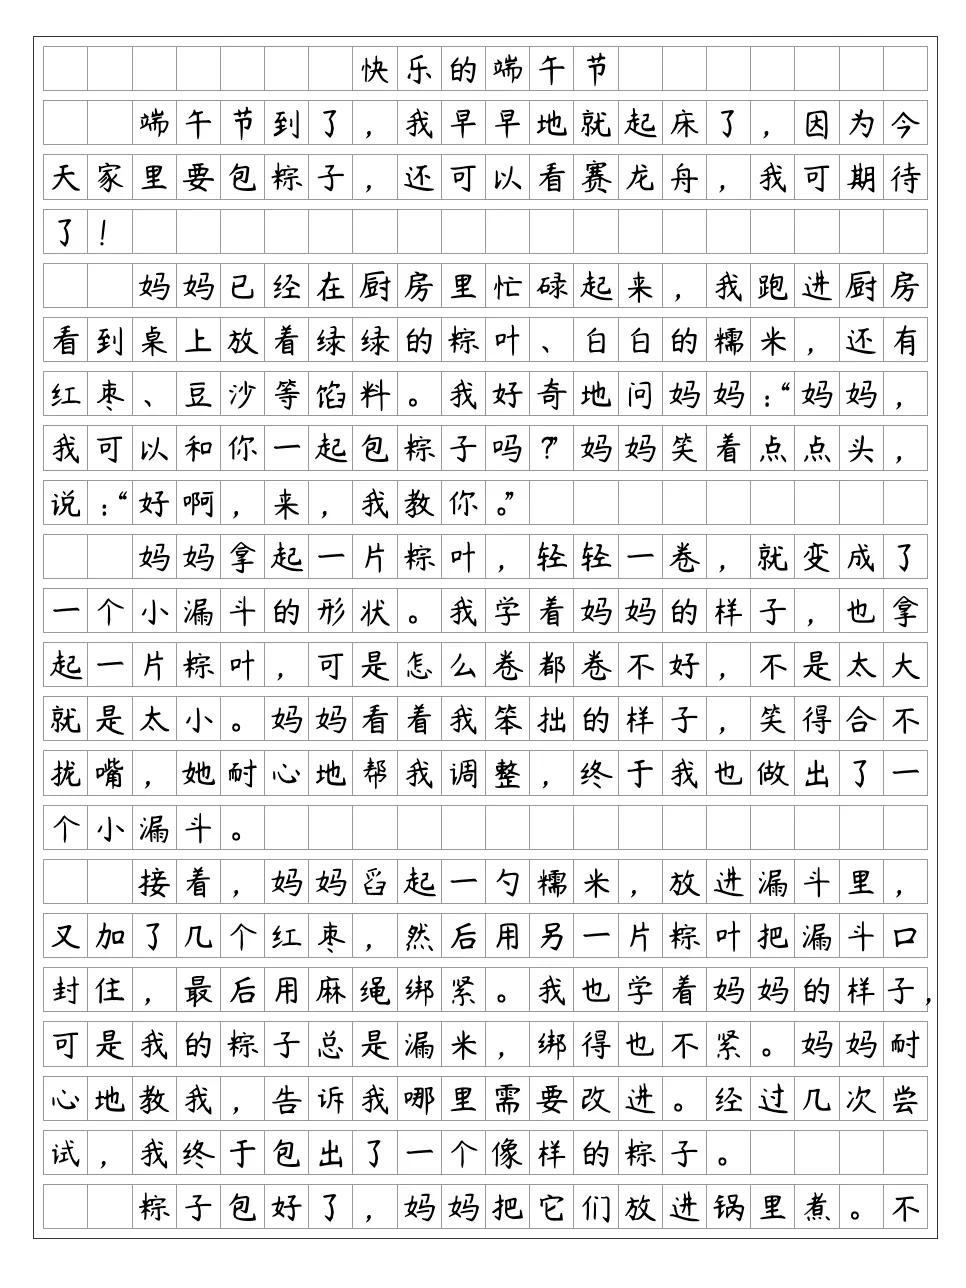 快乐的端午节
端午节到了，我早早地就起床了，因为今
天家里要包粽子，还可以看赛龙舟，我可期待
了！
妈妈已经在厨房里忙碌起来，我跑进厨房
看到桌上放着绿绿的粽叶、白白的糯米，还有
红枣、豆沙等馅料。我好奇地问妈妈：“妈妈，
我可以和你一起包粽子吗？”妈妈笑着点点头，
说：“好啊，来，我教你。”
妈妈拿起一片粽叶，轻轻一卷，就变成了
一个小漏斗的形状。我学着妈妈的样子，也拿
起一片粽叶，可是怎么卷都卷不好，不是太大
就是太小。妈妈看着我笨拙的样子，笑得合不
拢嘴，她耐心地帮我调整，终于我也做出了一
个小漏斗。
接着，妈妈舀起一勺糯米，放进漏斗里，
又加了几个红枣，然后用另一片粽叶把漏斗口
封住，最后用麻绳绑紧。我也学着妈妈的样子，
可是我的粽子总是漏米，绑得也不紧。妈妈耐
心地教我，告诉我哪里需要改进。经过几次尝
试，我终于包出了一个像样的粽子。
粽子包好了，妈妈把它们放进锅里煮。不